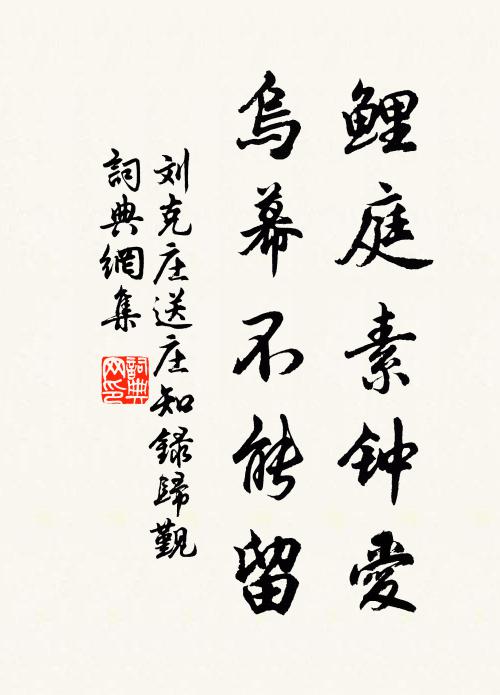 鲤庭素钟爱
乌幕不能留
刘克庄送庄知録歸覲
詞典網集
詞典网印